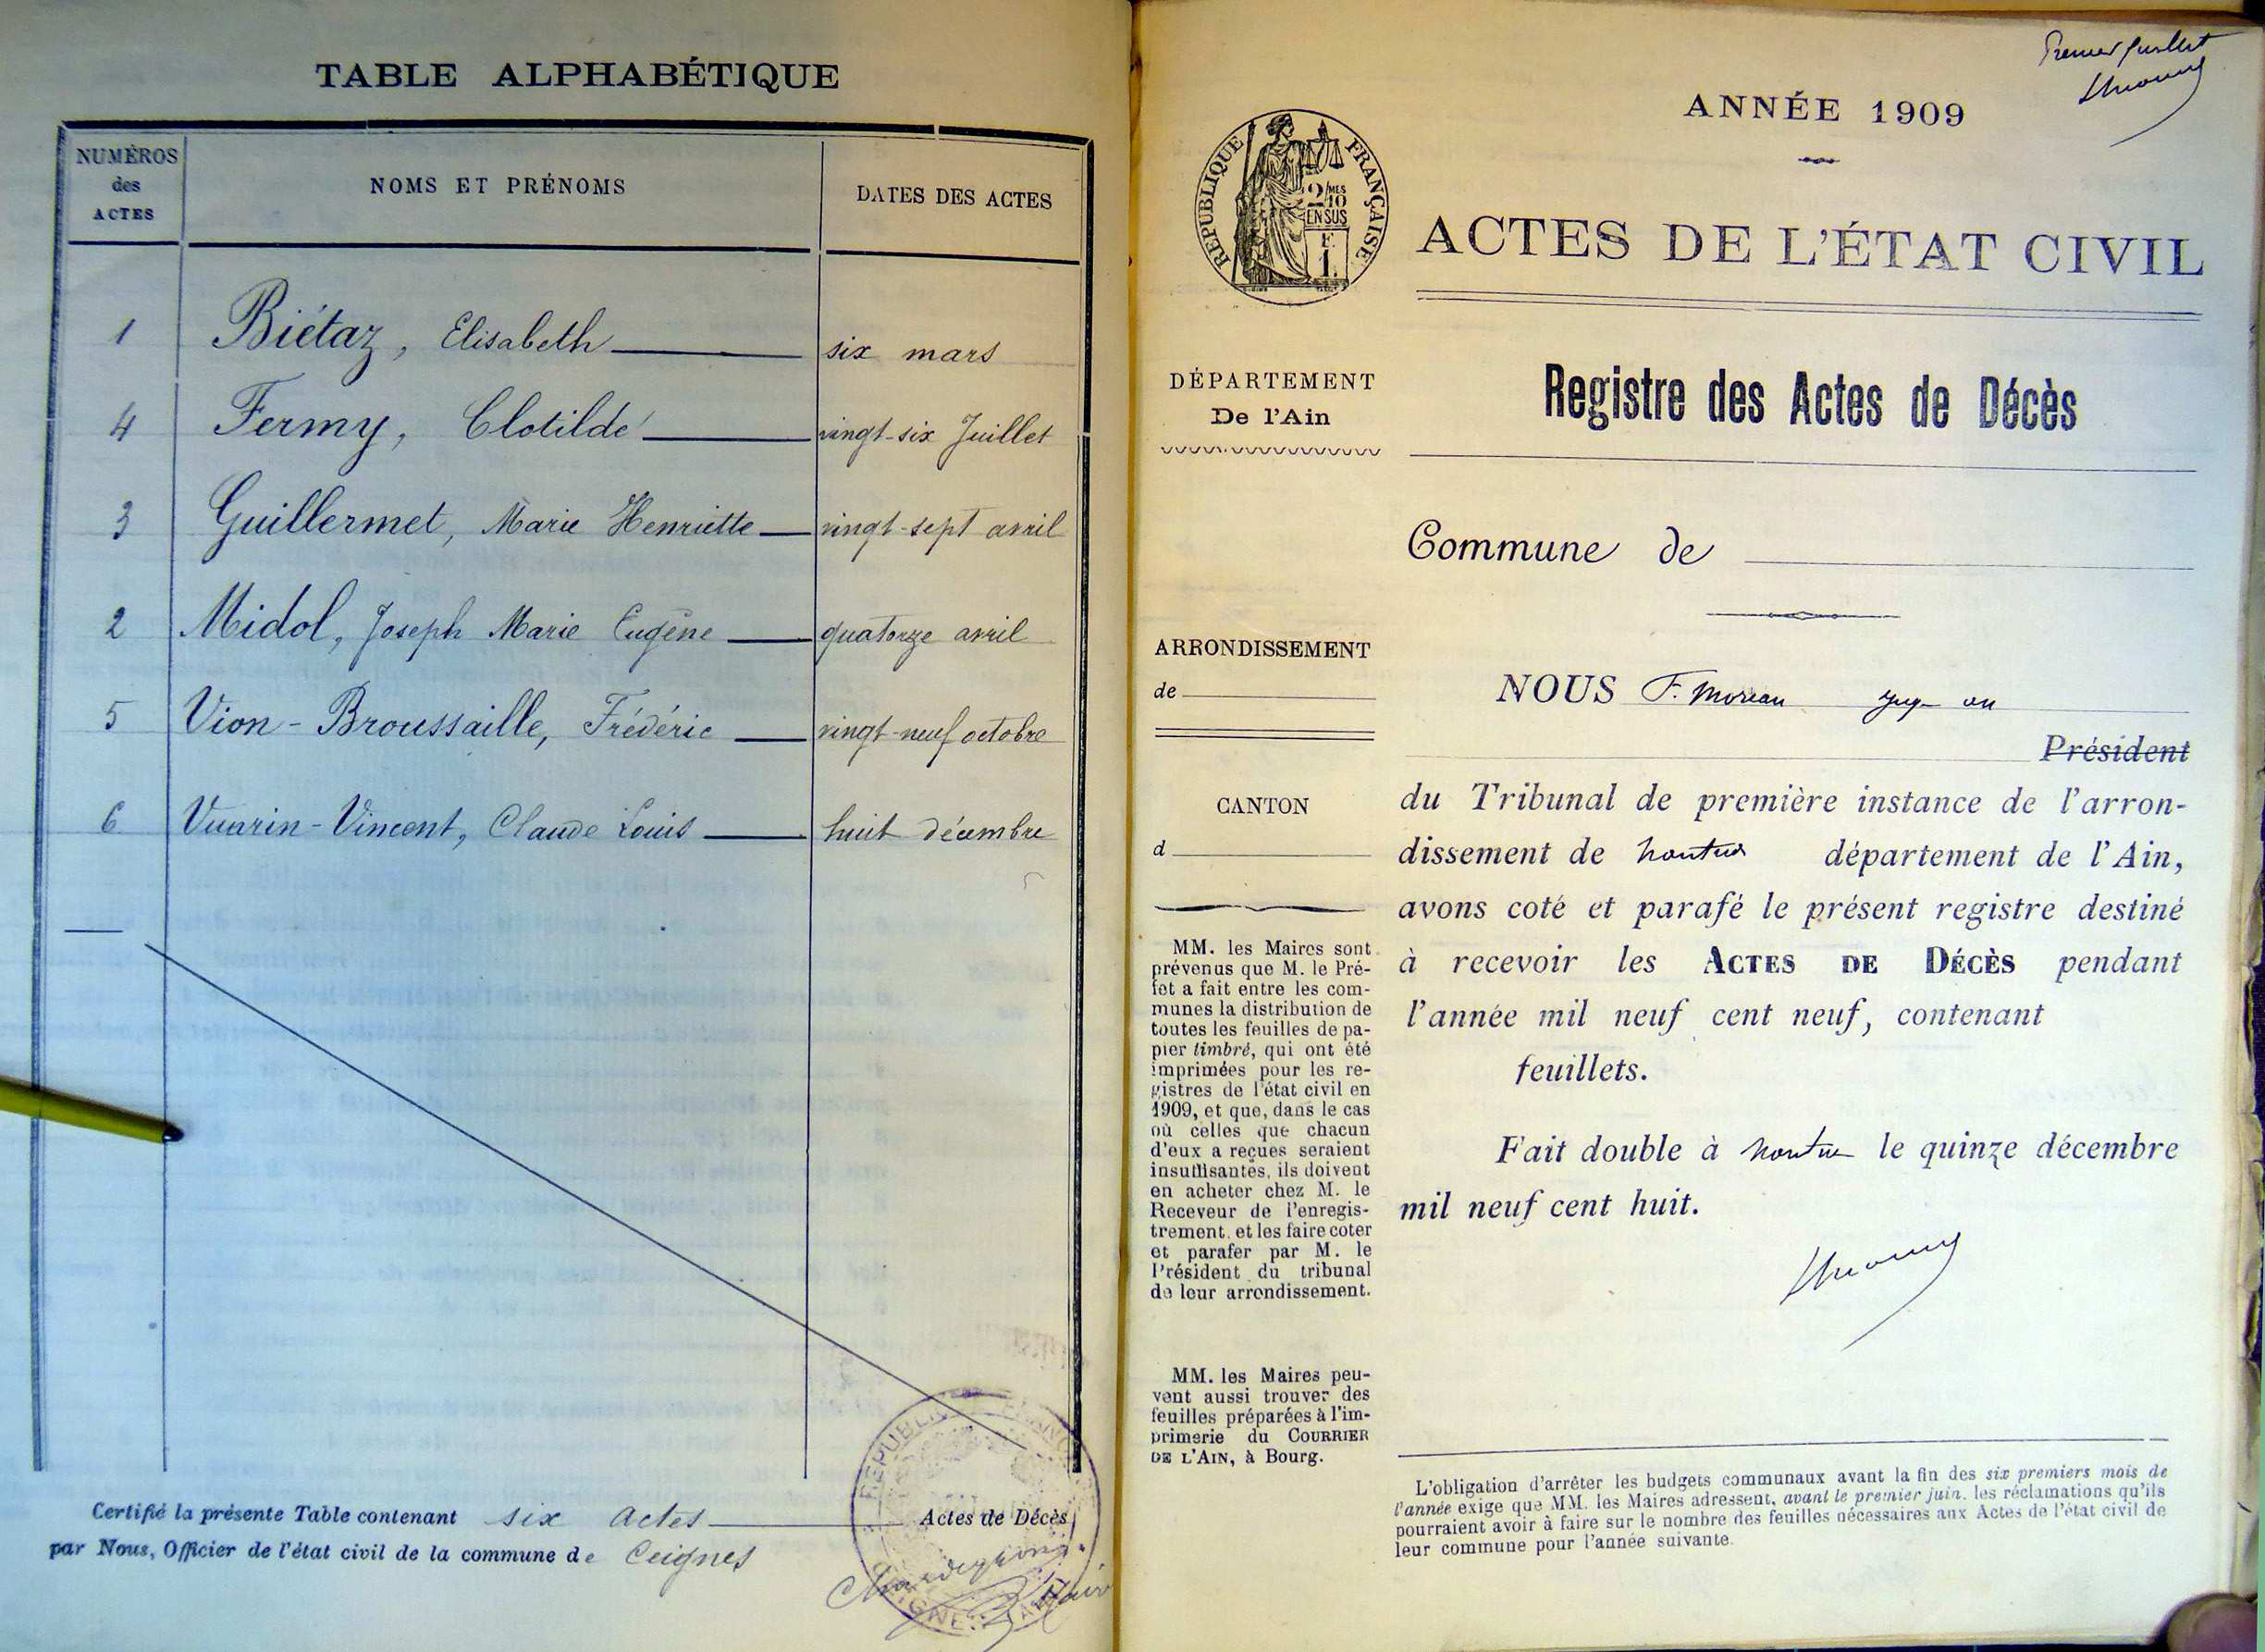 TABLE ALPHABÉTIQUE
NUMÉROS des ACTES
NOMS ET PRÉNOMS
DATES DES ACTES
1 Biétaz, Elisabeth six mars
4 Fermy, Clotilde vingt-six Juillet
3 Guillermet, Marie Henriette vingt-sept avril
2 Midol, Joseph Marie Eugène quatorze avril
5 Vion-Broussaille, Frédéric vingt-neuf octobre
6 Vuarin-Vincent, Claude Louis huit décembre
Certifié la présente Table contenant six Actes Actes de Décès
par Nous, Officier de l'état civil de la commune de Ceignes
Premier feuillet
ANNÉE 1909
RÉPUBLIQUE FRANÇAISE
2/10 MES
EN SUS
F.
1.
ACTES DE L'ÉTAT CIVIL
DÉPARTEMENT
De l'Ain
Registre des Actes de Décès
Commune de
ARRONDISSEMENT
de
CANTON
d
MM. les Maires sont
prévenus que M. le Pré-
fet a fait entre les com-
munes la distribution de
toutes les feuilles de pa-
pier timbré, qui ont été
imprimées pour les re-
gistres de l'état civil en
1909, et que, dans le cas
où celles que chacun
d'eux a reçues seraient
insuffisantes, ils doivent
en acheter chez M. le
Receveur de l'enregis-
trement, et les faire coter
et parafer par M. le
Président du tribunal
de leur arrondissement.
MM. les Maires peu-
vent aussi trouver des
feuilles préparées à l'im-
primerie du COURRIER
DE L'AIN, à Bourg.
NOUS F. Moreau juge au
Président
du Tribunal de première instance de l'arron-
dissement de Nantua département de l'Ain,
avons coté et parafé le présent registre destiné
à recevoir les ACTES DE DÉCÈS pendant
l'année mil neuf cent neuf, contenant
feuillets.
Fait double à Nantua le quinze décembre
mil neuf cent huit.
L'obligation d'arrêter les budgets communaux avant la fin des six premiers mois de
l'année exige que MM. les Maires adressent, avant le premier juin, les réclamations qu'ils
pourraient avoir à faire sur le nombre des feuilles nécessaires aux Actes de l'état civil de
leur commune pour l'année suivante.